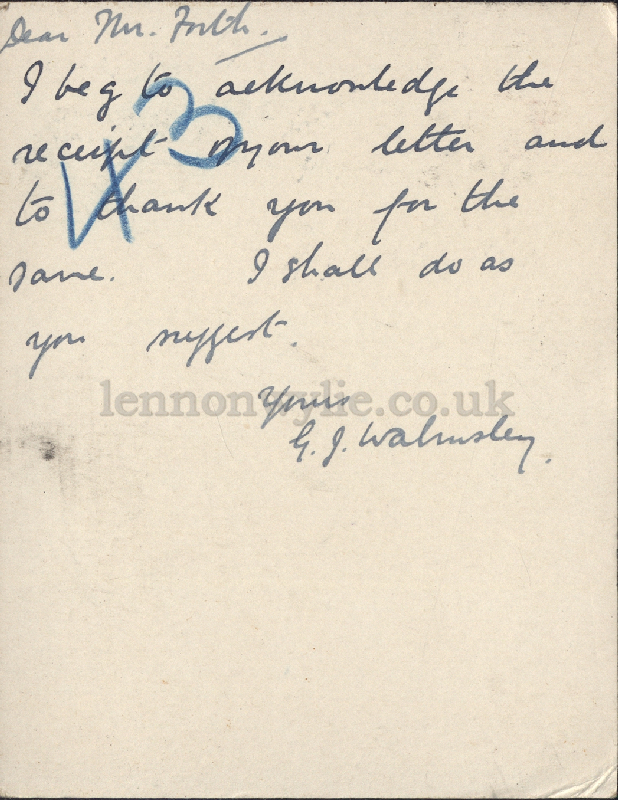 Dear Mr. Forth.
I beg to acknowledge the
receipt of your letter and
to thank you for the
same. I shall do as
you suggest.
Yours
G. J. Walmsley.
43
lennonwylie.co.uk